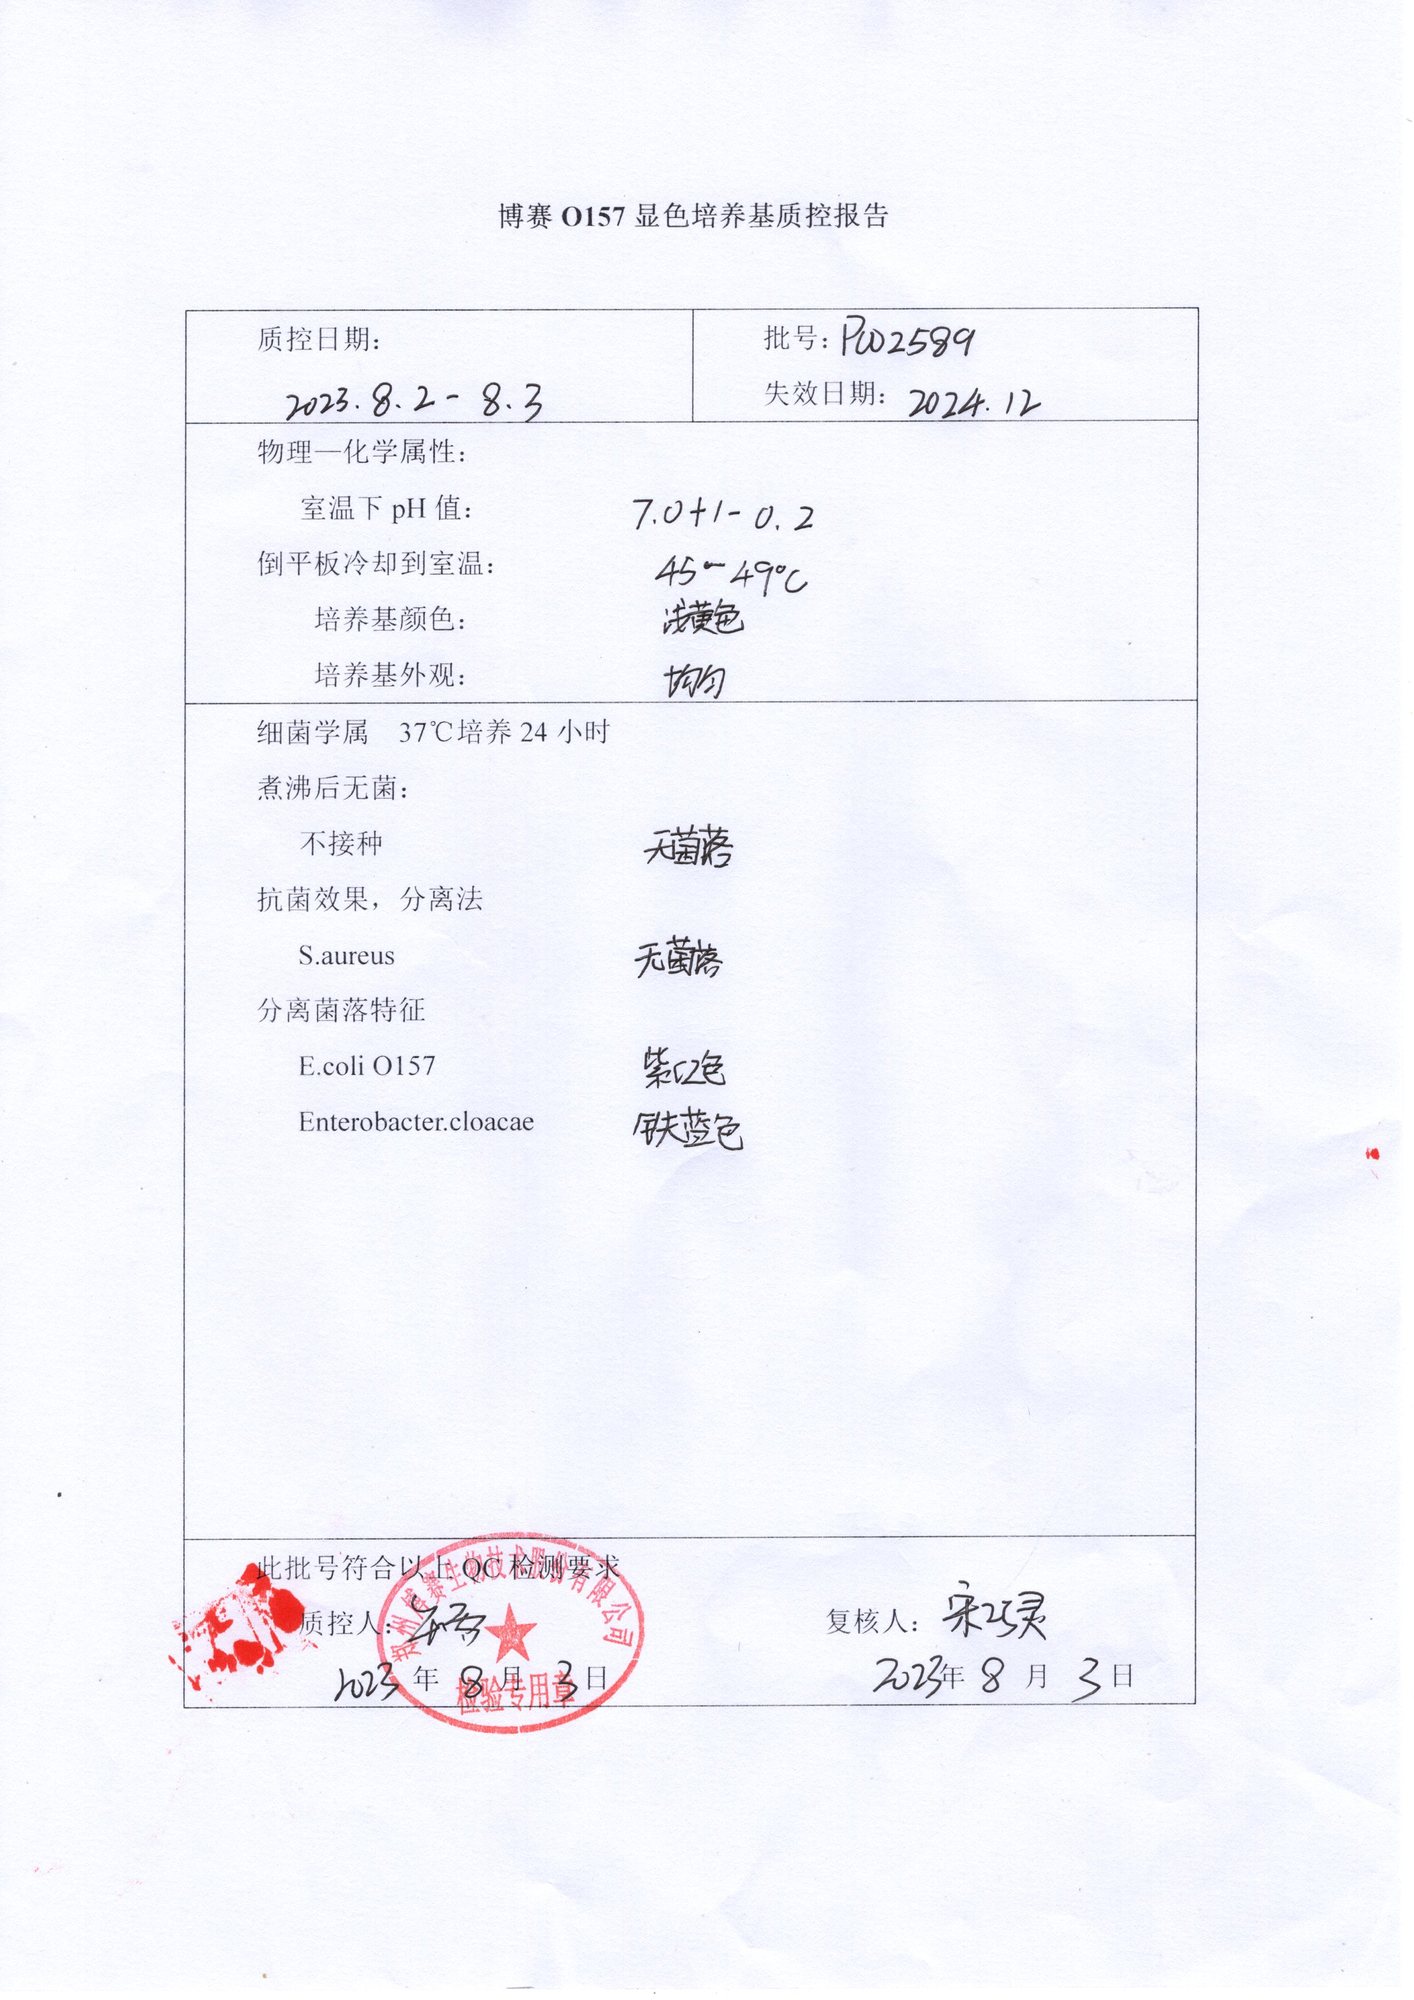 博赛 O157 显色培养基质控报告
质控日期：
2023.8.2 - 8.3
批号：PW02589
失效日期：2024.12
物理—化学属性：
室温下 pH 值： 7.0+1- 0.2
倒平板冷却到室温： 45~49℃
培养基颜色： 浅黄色
培养基外观： 均匀
细菌学属 37℃培养 24 小时
煮沸后无菌：
不接种 无菌落
抗菌效果，分离法
S.aureus 无菌落
分离菌落特征
E.coli O157 紫红色
Enterobacter.cloacae 铁蓝色
此批号符合以上 QC 检测要求
质控人：
复核人：宋巧灵
2023 年 8 月 3 日
2023年 8 月 3 日
郑州博赛生物技术股份有限公司
检验专用章